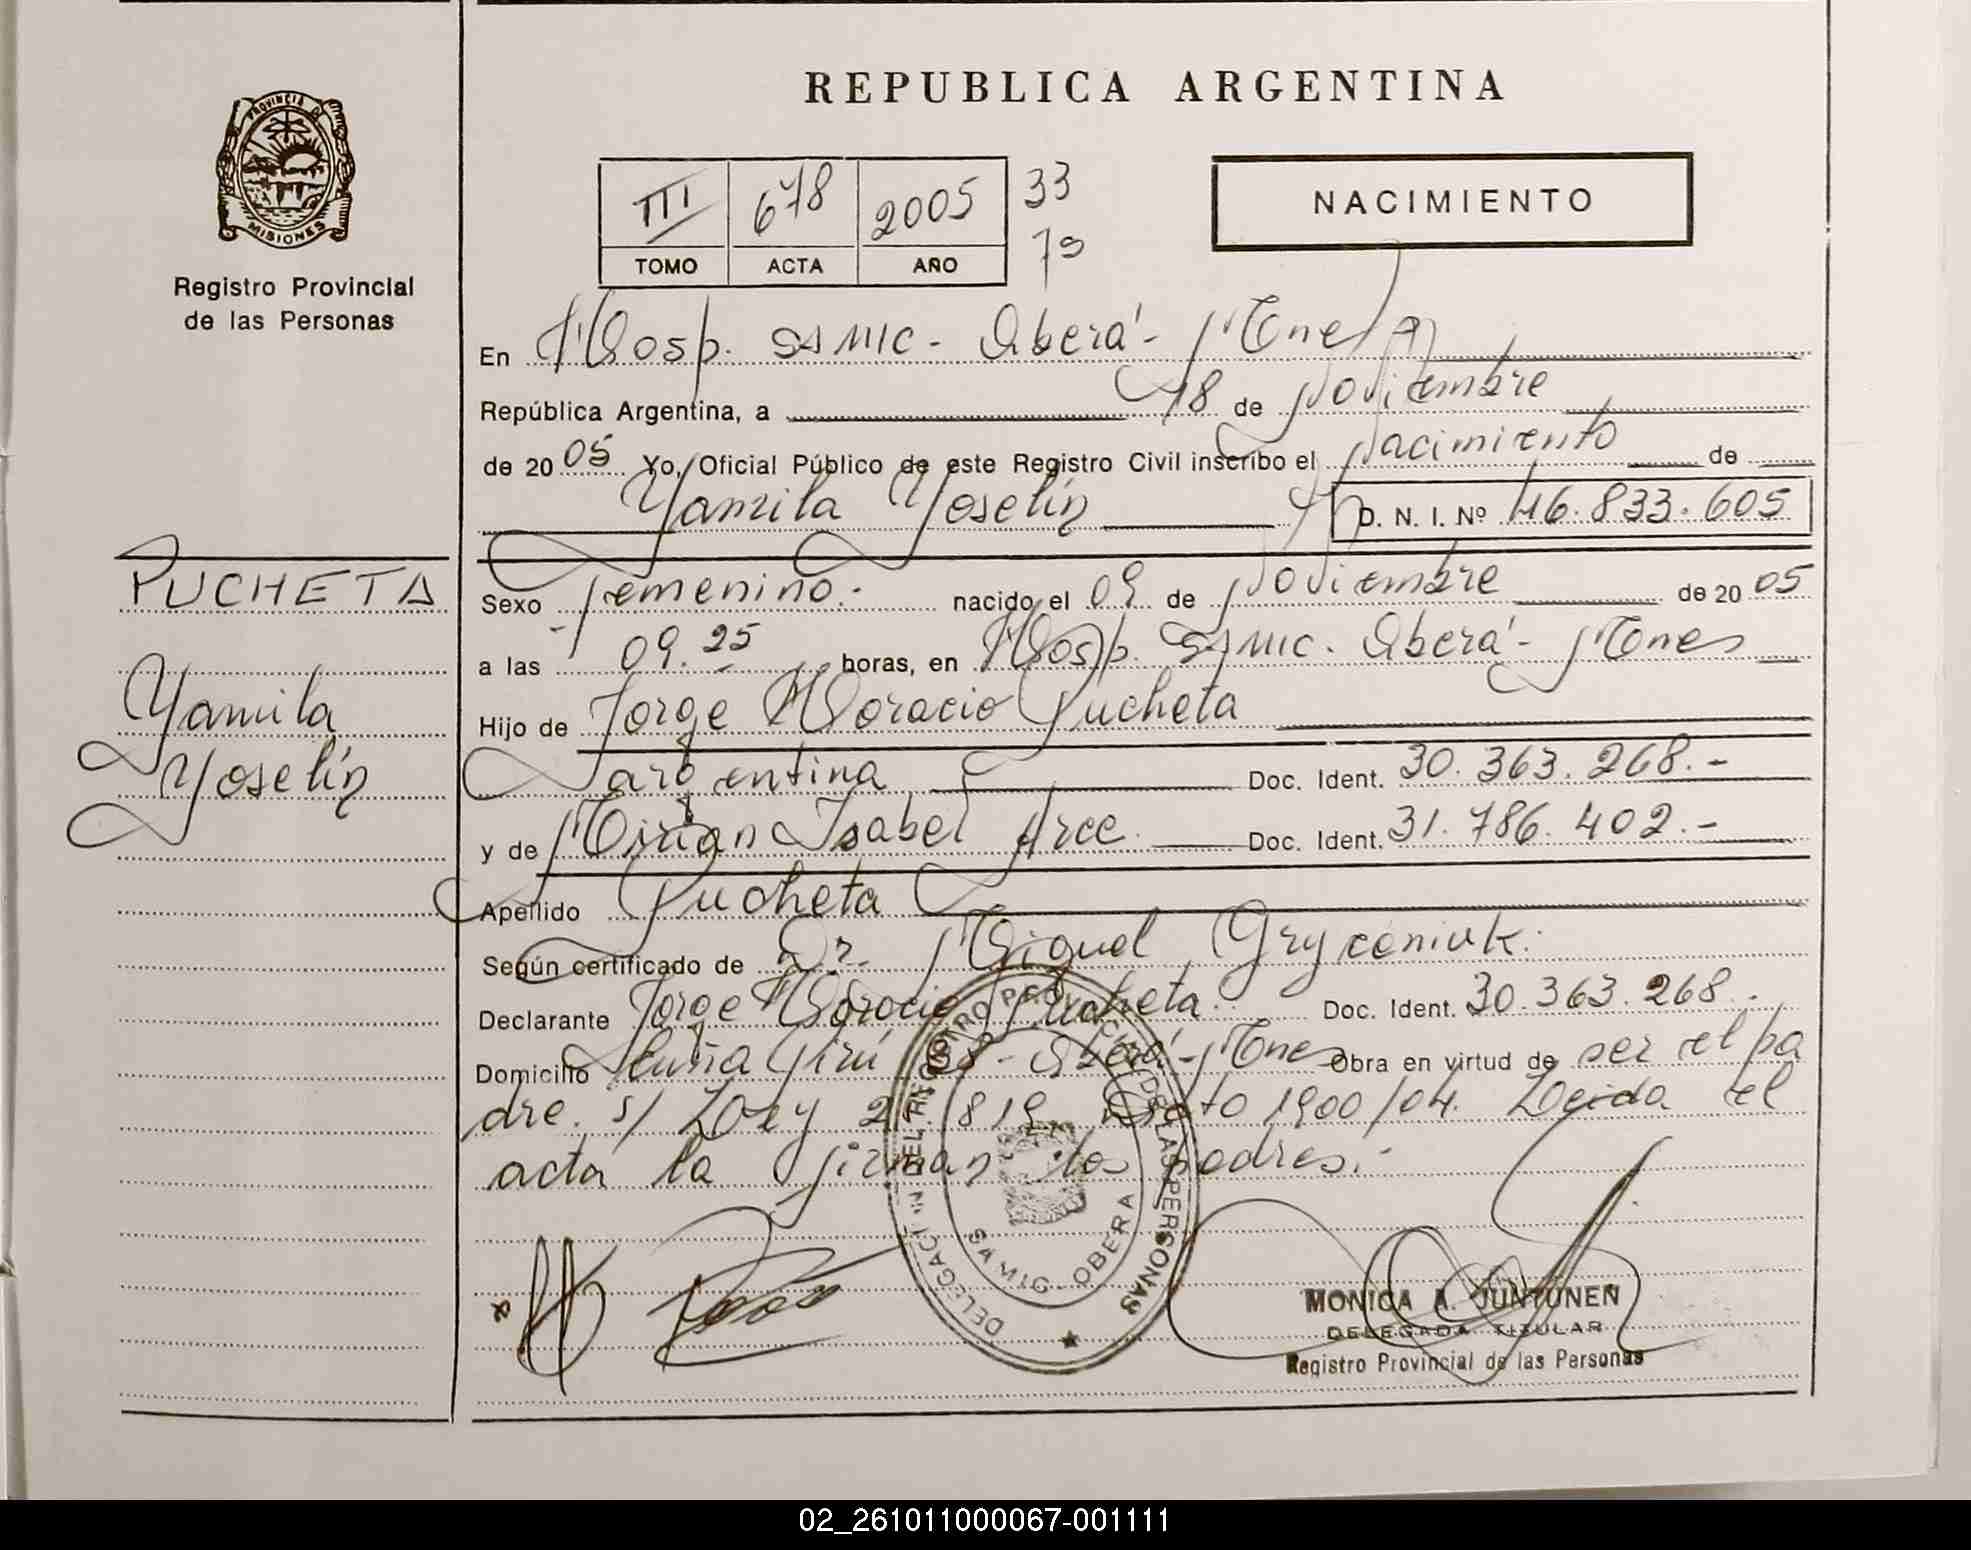 REPUBLICA ARGENTINA
PROVINCIA DE
MISIONES
Registro Provincial
de las Personas
III 678 2005 33
TOMO ACTA AÑO 79
NACIMIENTO
En Hosp. SAMIC - Oberá - Mnes
República Argentina, a 18 de Noviembre
de 2005 Yo, Oficial Público de este Registro Civil inscribo el Nacimiento de
Yamila Yoselín D. N. I. Nº 46.833.605
PUCHETA
Yamila
Yoselín
Sexo femenino.- nacido el 09 de Noviembre de 2005
a las 09.25 horas, en Hosp. SAMIC. Oberá - Mnes
Hijo de Jorge Horacio Pucheta
argentina Doc. Ident. 30.363.268.-
y de Mirian Isabel Arce Doc. Ident. 31.786.402.-
Apellido Pucheta
Según certificado de Dr. Miguel Gryceniuk.
Declarante Jorge Horacio Pucheta. Doc. Ident. 30.363.268.-
Domicilio Oberá - Mnes Obra en virtud de ser el pa
dre. s/ Ley 819 Dto 1900/04. Leida el
acta la firman los padres.-
DELEGACION DEL REGISTRO PROVINCIAL DE LAS PERSONAS
SAMIC - OBERA
MONICA A. JUNTUNEN
DELEGADA TITULAR
Registro Provincial de las Personas
02_261011000067-001111